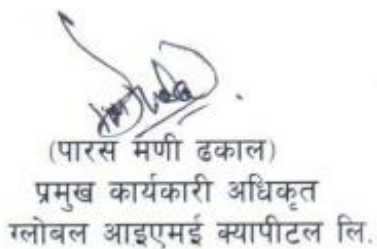 (पारस मणी ढकाल)
प्रमुख कार्यकारी अधिकृत
ग्लोबल आइएमई क्यापीटल लि.